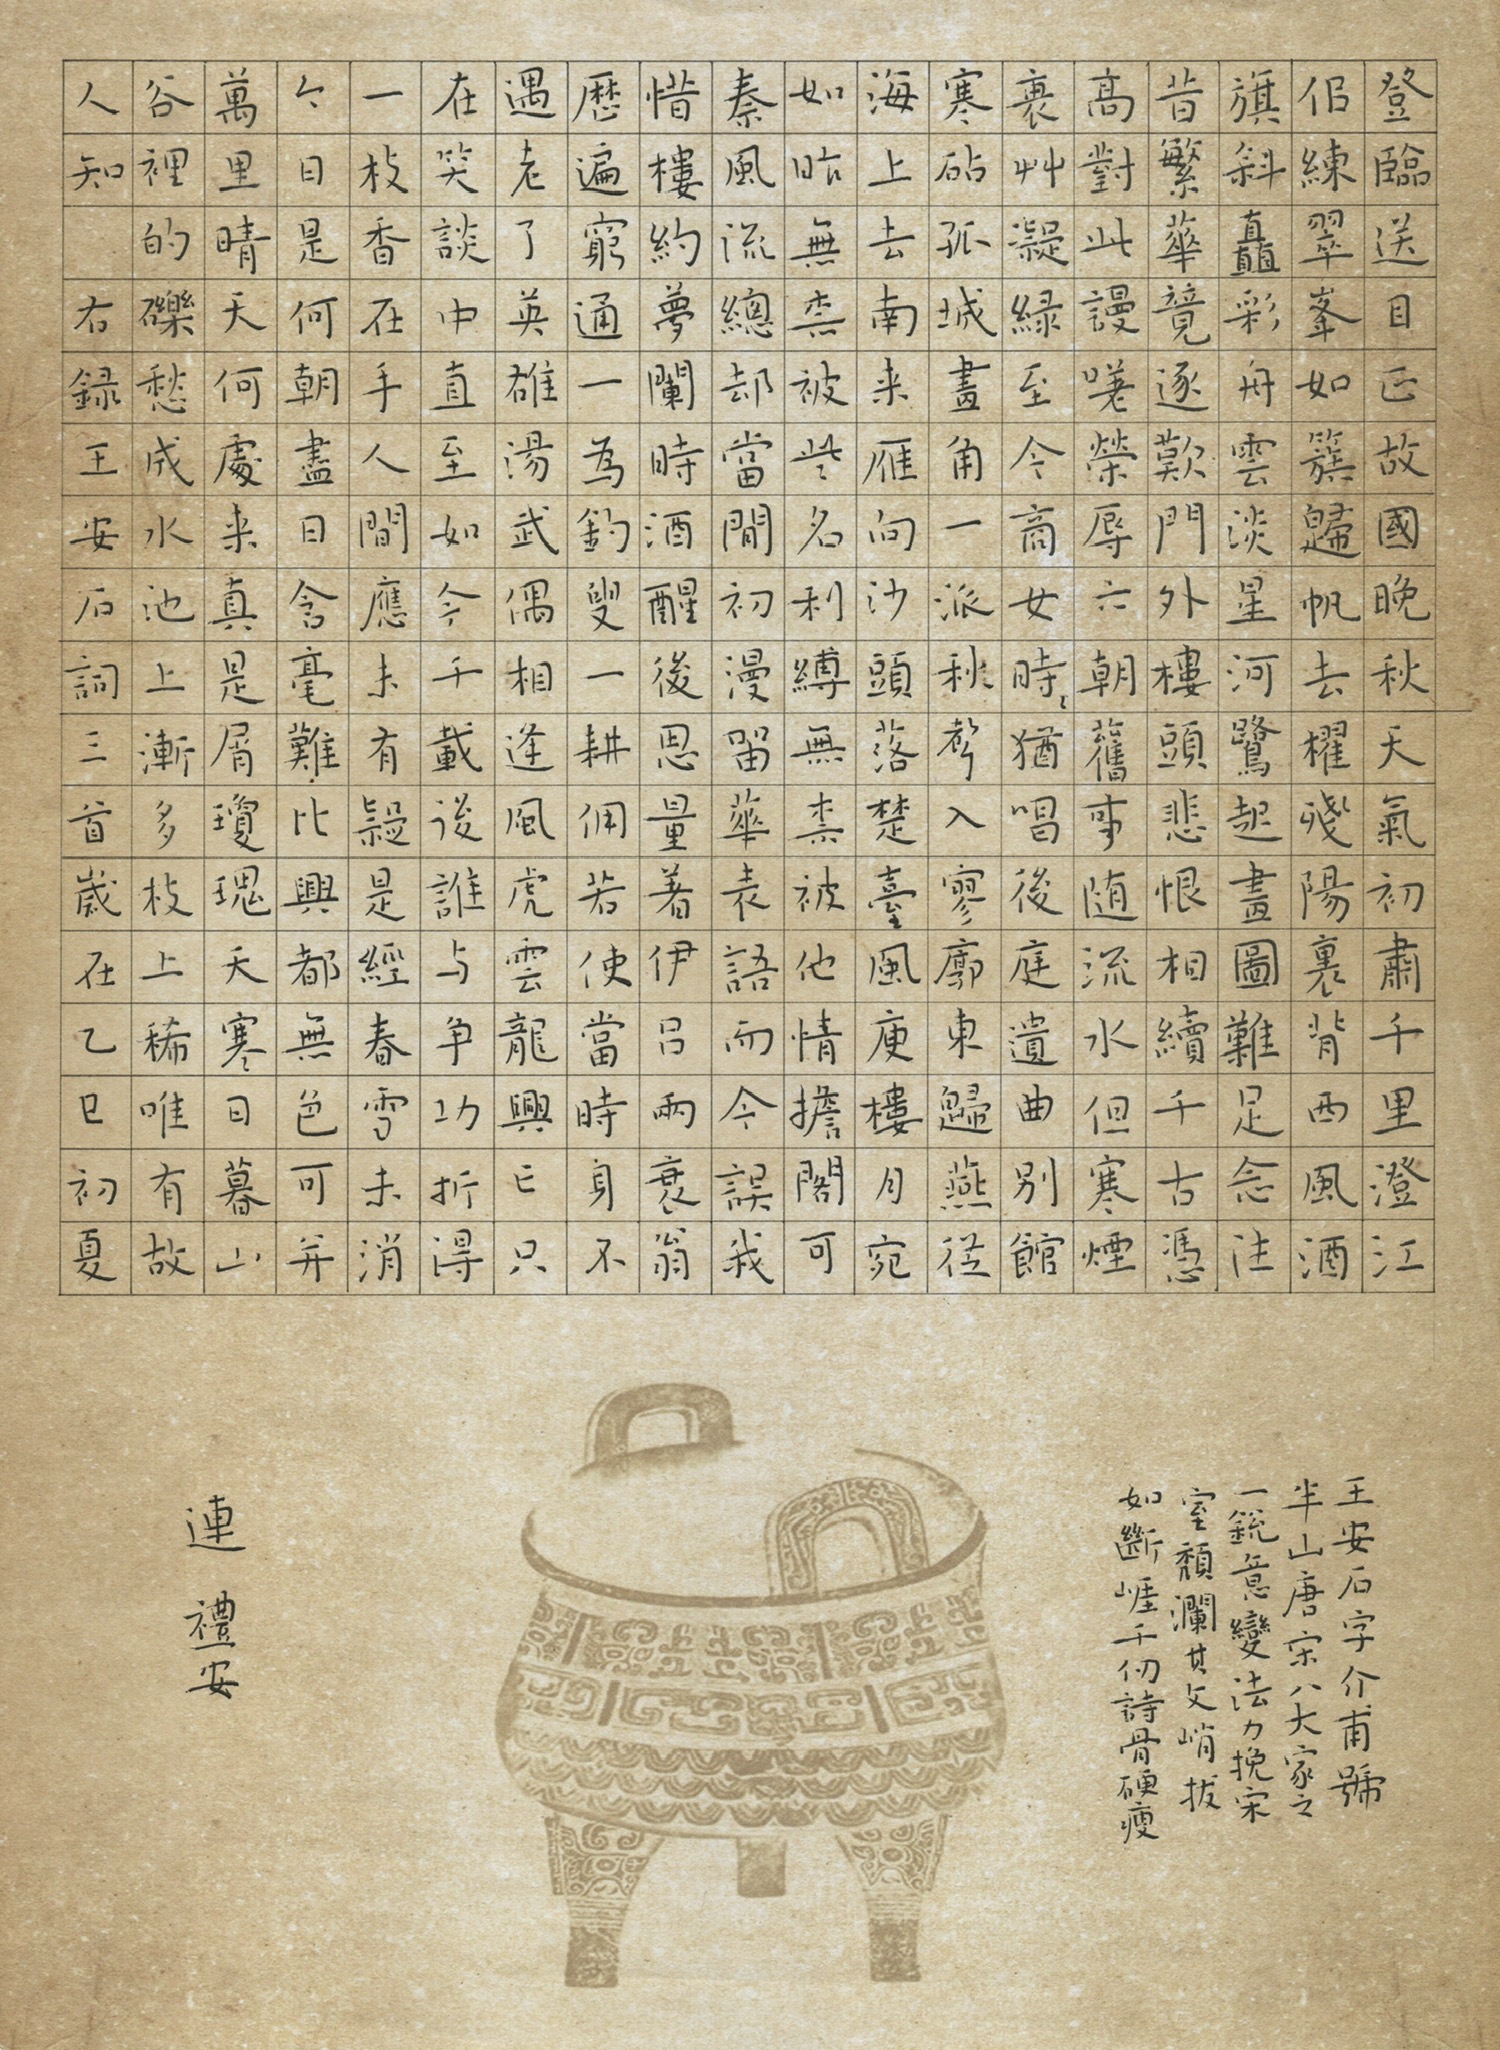 登臨送目正故國晚秋天氣初肅千里澄江
佀練翠峯如簇歸帆去櫂殘陽裏背西風酒
旗斜矗彩舟雲淡星河鷺起畫圖難足念往
昔繁華競逐歎門外樓頭悲恨相續千古憑
高對此謾嗟榮辱六朝舊事隨流水但寒煙
衰艸凝緑至今商女時〻猶唱後庭遺曲別館
寒砧孤城畫角一派秋聲入寥廓東歸燕從
海上去南来雁向沙頭落楚臺風庾樓月宛
如昨無柰被些名利縛無柰被他情擔閣可
秦風流總却當閒初漫留華表語而今誤我
惜樓約夢闌時酒醒後思量着伊吕兩衰翁
歷遍窮通一為釣叟一耕佣若使當時身不
遇老了英雄湯武偶相逢風虎雲龍興亡只
在笑談中直至如今千載後誰与争功折得
一枝香在手人間應未有疑是經春雪未消
今日是何朝盡日含毫難比興都無色可并
萬里晴天何處来真是屑瓊瑰天寒日暮山
谷裡的礫愁成水池上漸多枝上稀唯有故
人知 右録王安石詞三首歲在乙巳初夏
王安石字介甫號
半山唐宋八大家之
一銳意變法力挽宋
室頹瀾其文峭拔
如斷崕千仞詩骨硬瘦
連禮安